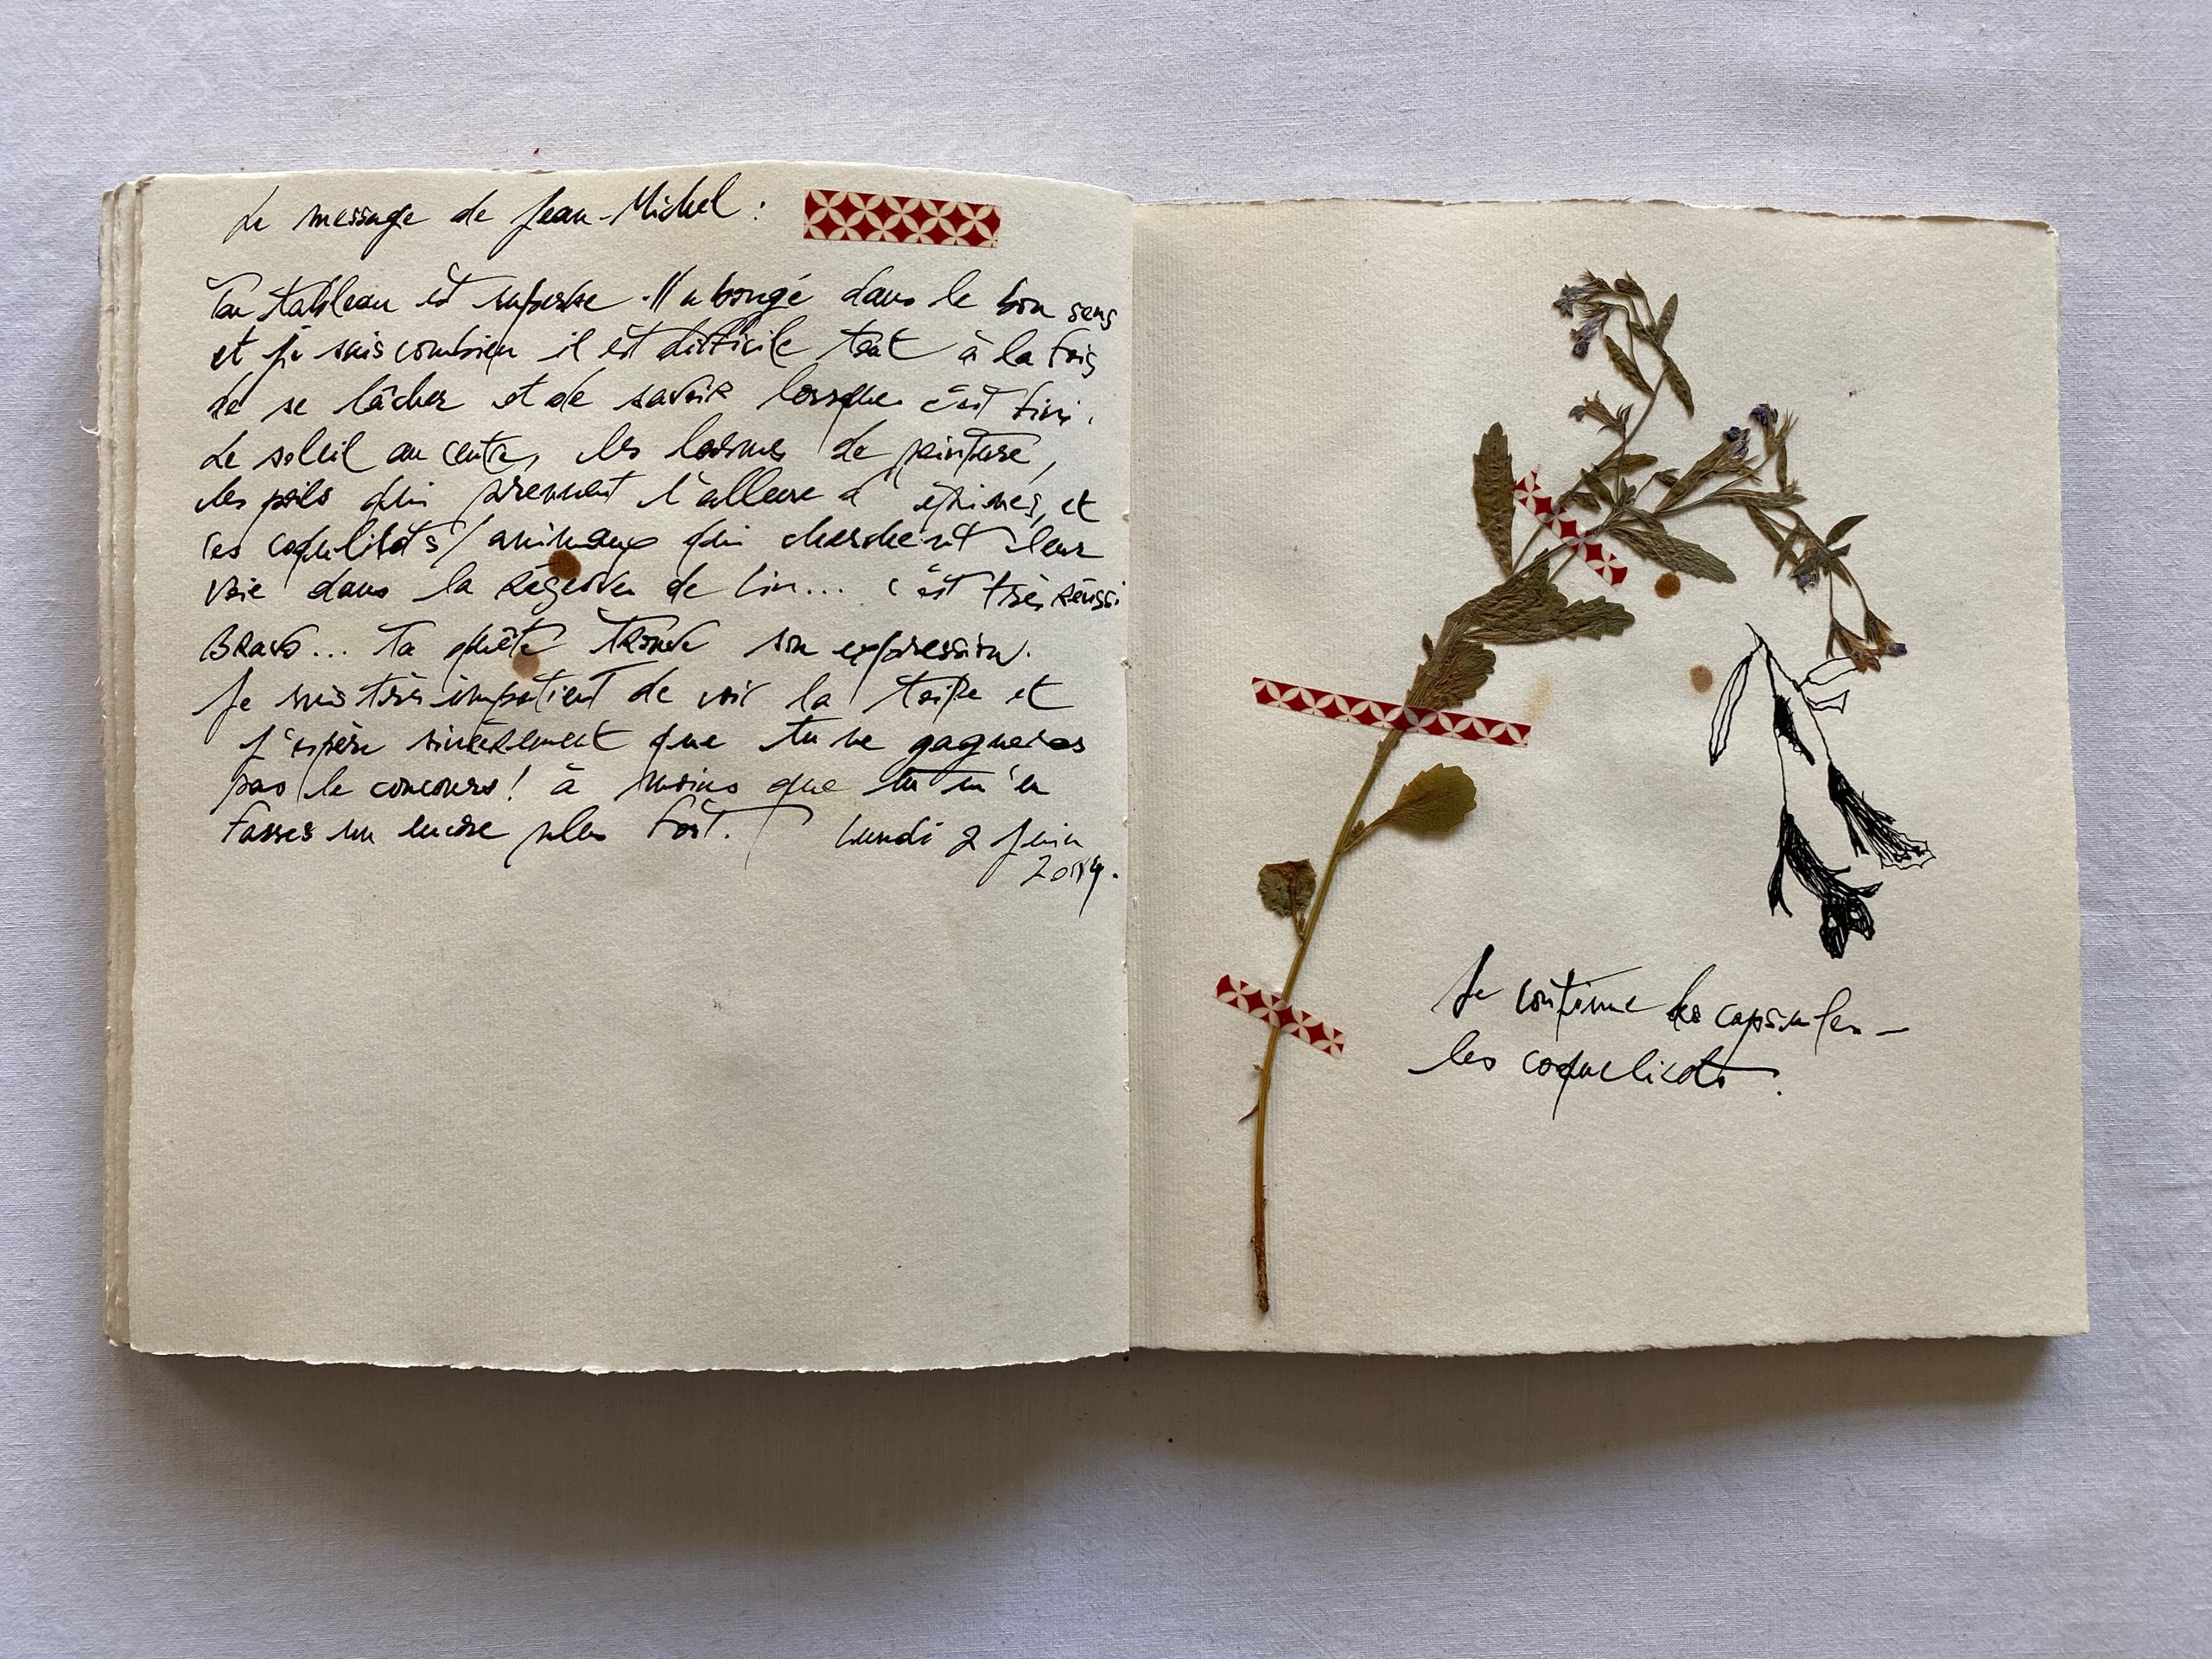 Le message de Jean-Michel :
Ton tableau est superbe. Il a bougé dans le bon sens
et je sais combien il est difficile tout à la fois
de se lâcher et de savoir lorsque c'est fini.
Le soleil au centre, les larmes de peinture,
les poils qui prennent l'allure d'épines, et
ces coquelicots/animaux qui cherchent leur
voie dans la réserve de lin... c'est très réussi
Bravo... Ta quête trouve son expression.
Je suis très impatient de voir la toile et
j'espère sincèrement que tu ne gagneras
pas le concours! à moins que tu m'en
fasses un encore plus fort. Lundi 2 Juin
Je continue les capsules -
les coquelicots.